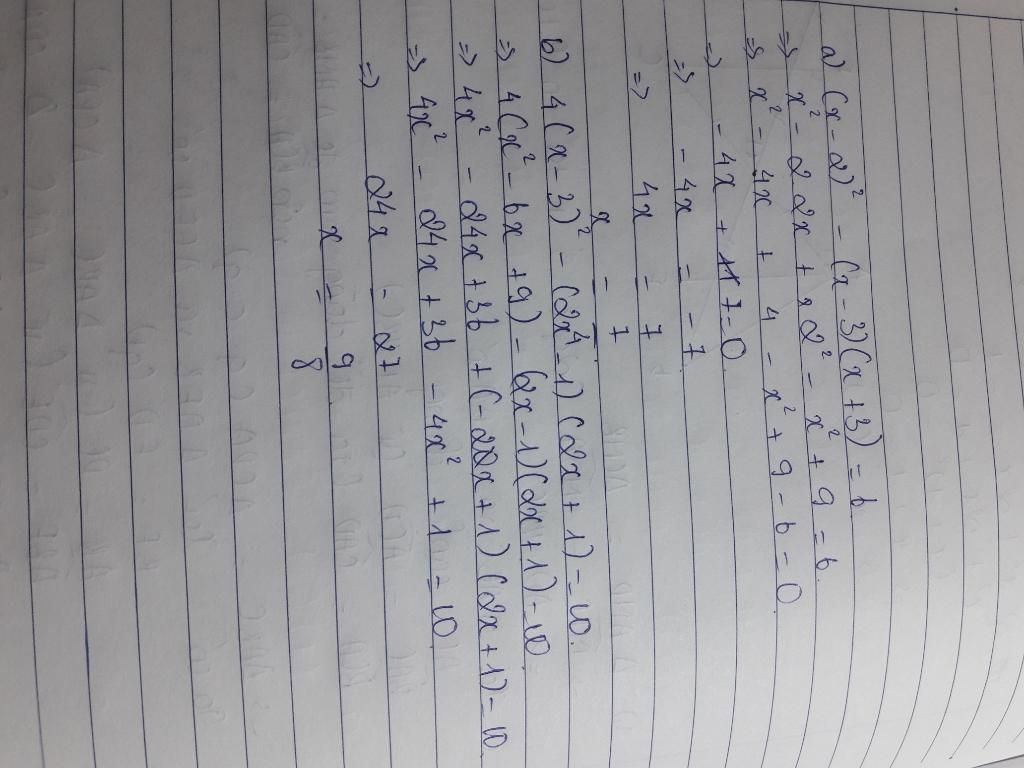 a) (x - 2)² - (x - 3)(x + 3) = 6
=> x² - 2 2x + 2² - x² + 9 = 6.
=> x² - 4x + 4 - x² + 9 - 6 = 0
=> - 4x + 7 = 0
=> - 4x = - 7
=> 4x = 7
x = 7/4
b) 4(x - 3)² - (2x - 1)(2x + 1) = 10.
=> 4(x² - 6x + 9) - (2x - 1)(2x + 1) = 10
=> 4x² - 24x + 36 + (-2x + 1)(2x + 1) = 10
=> 4x² - 24x + 36 - 4x² + 1 = 10
=> 24x = 27
x = 9/8